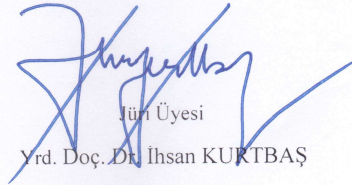 Jüri Üyesi
Yrd. Doç. Dr. İhsan KURTBAŞ